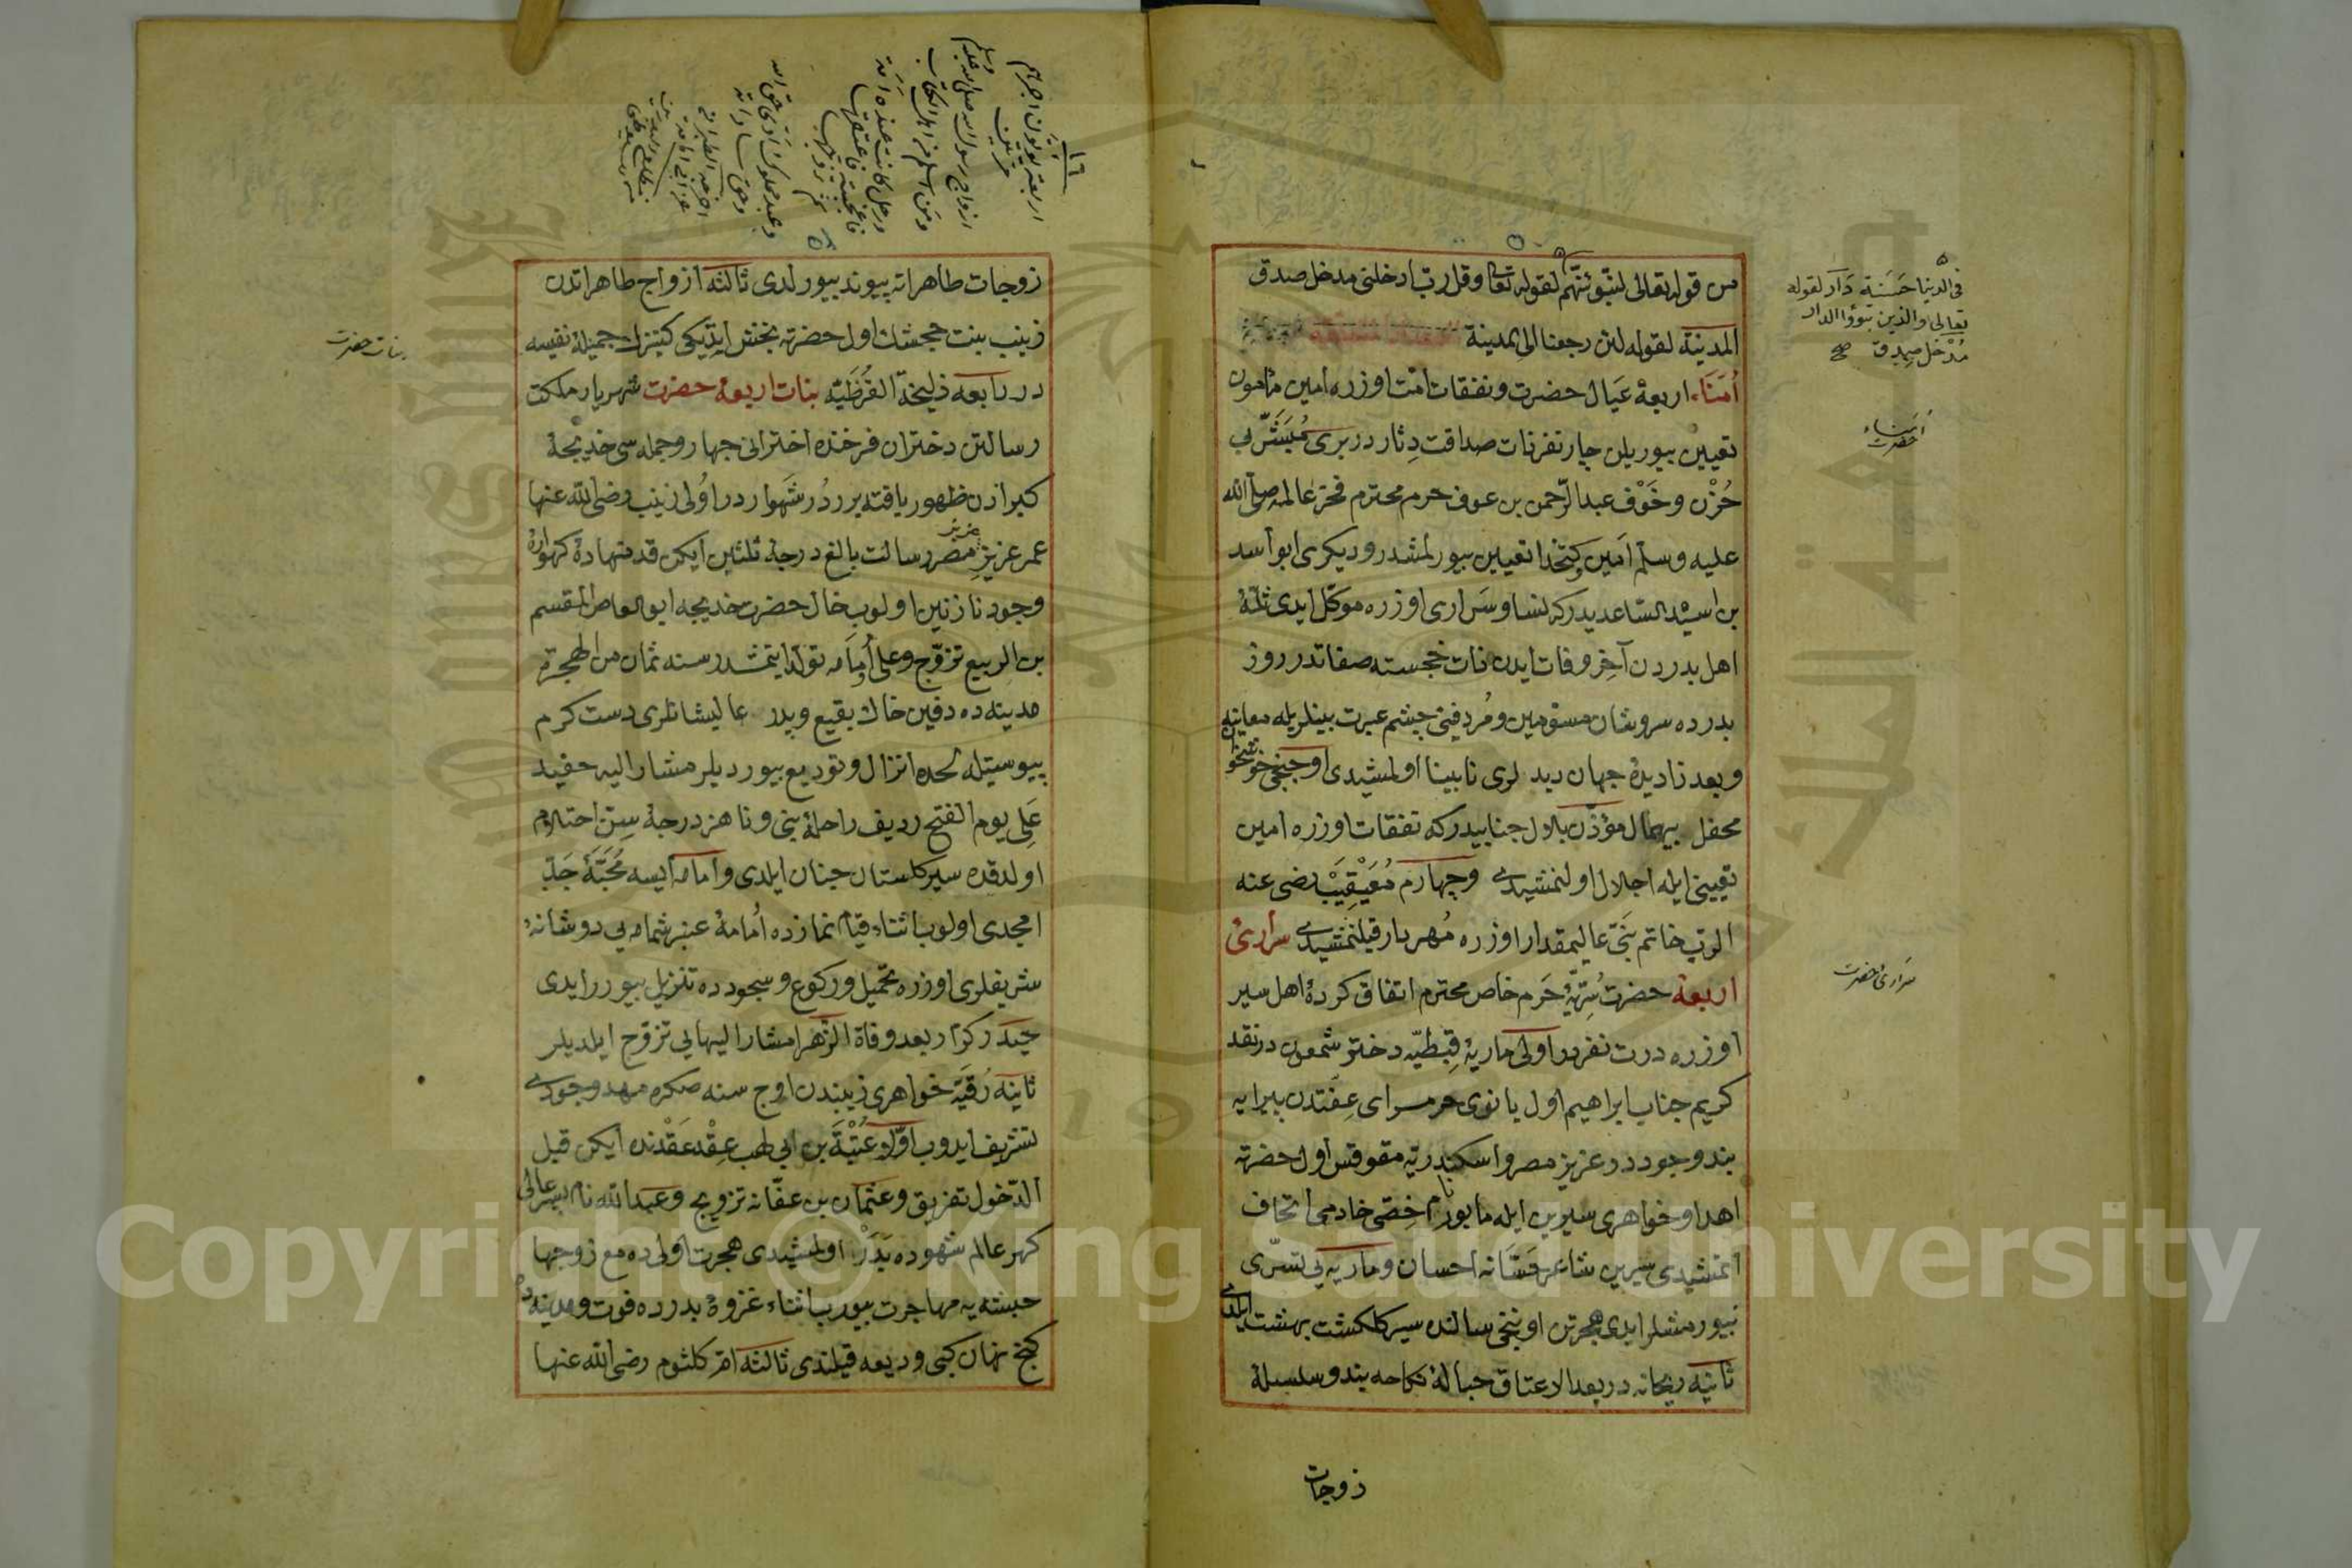 من قوله تعالى لنبوئنهم لقوله تعا وقل رب ادخلنى مدخل صدق
المدينة لقوله لئن رجعنا الى المدينة
أمناء اربعهٔ عيال حضرت ونفقات امت اوزره امين مأمون
تعيين بيوريلن چار نفر ذات صداقت دثار در برى مبشر بى
حزن وخوف عبد الرحمن بن عوف حرم محترم فخر عالمه صلى الله
عليه وسلم امين وكتخدا تعيين بيورلمشدر وديكرى ابو أسد
بن اسيد الساعديدركه نسا وسرارى اوزره موكل ايدى ثلثهٔ
اهل بدردن آخر وفات ايدن ذات خجسته صفاتدر روز
بدرده سروشان مسومين ومردفينى چشم عبرت بينلريله معاينه
وبعد زا ديدهٔ جهان ديد لرى نابينا اولمشيدى اوچنجى خوشخوان
محفل بيهمال مؤذن بلال جنابيدركه نفقات اوزره امين
تعيينى ايله اجلال اولنمشيدى وچهارم معيقيب رضى عنه
الوب خاتم نبى عاليمقدار اوزره مهردار قيلنمشيدى سرارئ
اربعه حضرت سريهٔ حرم خاص محترم اتفاق كردهٔ اهل سير
اوزره درت نفردر اولى ماريهٔ قبطيه دختر شمعون درنقد
كريم جناب ابراهيم اول بانوى حرمسراى عفتدن پيرايه
بند وجوددر عزيز مصر واسكندريه مقوقس اول حضرته
اهدا وخواهرى سيرين ايله مابور نام خصى خادمى اتحاف
ايتمشيدى سيرين شاعر حسانه احسان وماريه يى تسرى
بيورمشلر ايدى هجرتن اون بنجى سالنده سير كلكشت بهشت ايلدى
ثانيه ريحانه در بعد الاعتاق حبالهٔ نكاحه بند وسلسلهٔ
زوجات
فى الدنيا حسنة دار لقوله
تعالى والذين تبوؤا الدار
مدخل صدق صح
أمناء
حضرت
سرارئ حضرت
زوجات طاهراته پيوند بيورلدى ثالثه ازواج طاهراتدن
زينب بنت جحشك اول حضرته بخش ايتديكى كنيزك جميلهٔ نفيسه
در رابعه زليخة القرظيه بنات اربعهٔ حضرت شهريار مملكت
رسالتن دختران فرخنده اخترانى چهار وجمله سى خديجهٔ
كبرادن ظهور يافته برر در شهواردر اولى زينب رضى الله عنها
عمر عزيز عزيز مصر رسالت بالغ درجهٔ ثلثين ايكن قدمنهادهٔ كهوارهٔ
وجود نازنين اولوب خال حضرت خديجه ابو العاص المقسم
بن الربيع تزوج وعلى وأمامه تولد ايتمشدر سنه ثمان من الهجرة
مدينه ده دفين خاك بقيع وپدر عاليشانلرى دست كرم
پيوستيله لحده انزال وتوديع بيورديلر مشار اليه حفيد
على يوم الفتح رديف راحلهٔ نبى وناهز درجهٔ سن احتلام
اولدقده سير كلستان جنان ايلدى وامامه ايسه محبهٔ جد
امجدى اولوب اثناء قيام نمازده أمامهٔ عنبر شمامه يى دوشانهٔ
شريفلرى اوزره تحميل وركوع وسجودده تنزيل بيوررايدى
حيدر كرار بعد وفاة الزهرا مشار اليهايى تزوج ايلديلر
ثانيه رقية خواهرى زينبدن اوج سنه صكره مهد وجودى
تشريف ايدوب اولا عتبة بن ابى لهب عقد عقدنده ايكن قبل
الدخول تفريق وعثمان بن عفانه تزويج وعبد الله نام پسر عالى
كهر عالم شهوده بدر اولمشيدى هجرت اولى ده مع زوجها
حبشه يه مهاجرت بيوروب اثناء غزوهٔ بدرده فوت ومدينه ده
كنج نهان كبى وديعه قيلندى ثالثه ام كلثوم رضى الله عنها
بنات حضرت
١٦
اربعة يؤتون اجرهم
مرتين
ازواج رسول الله صلى الله عليه
وسلم
ومن اسلم من اهل الكتاب
ورجل كانت عنده امة
فاعجبته فاعتقها
ثم تزوجها
وعبد مملوك ادى حق الله
وحق ساداته
اخرجه الطبرانى
عن ابى امامة
Copyright © King Saud University